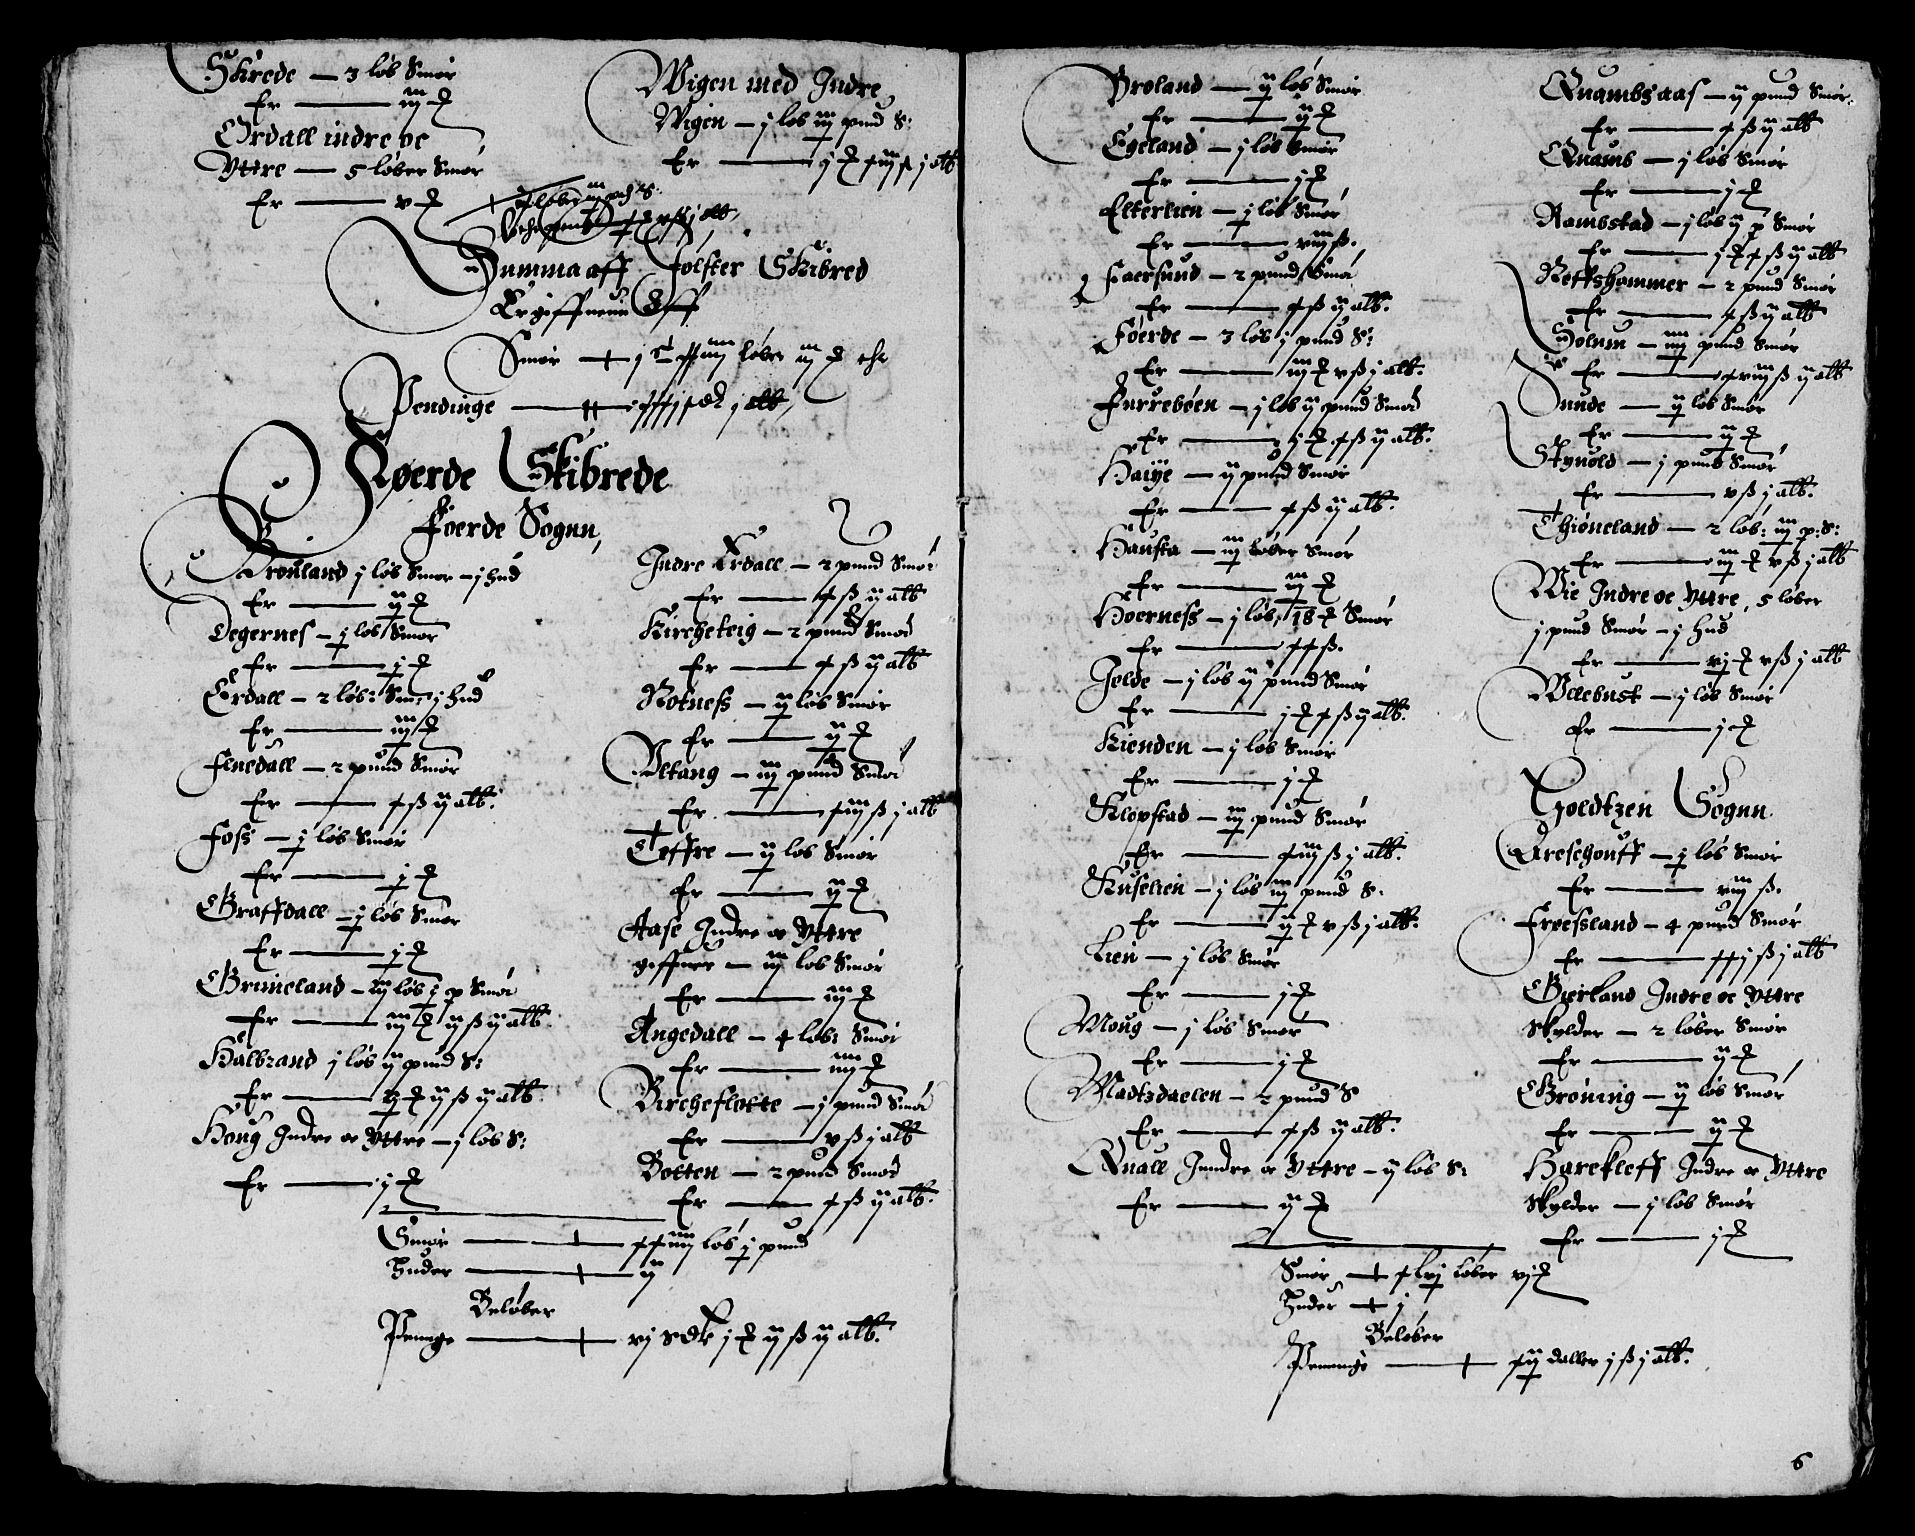 Skrede — 3 løb Smør
Er — iij ₰
Ordall indre oc
Yttre — 5 løber Smør
Er — v ₰
Wigen med Indre
Wigen — j løb iij pund S:
Er — j ₰ j alb
Summa aff Jolster Skibred
Er giffuenn
Smør — løber iij ₰
Pendinge — j alb
Føerde Skibrede
Føerde Sognn,
Brouland j løb Smør – j hud
Er — ij ₰
Degernes — j løb Smør
Er — j ₰
Erdall — 2 løb: Smør j hud
Er — iij ₰
Fenedall — 2 pund Smør
Er — x ß ij alb.
Foss — j løb Smør
Er — j ₰
Graffdall — j løb Smør
Er — j ₰
Grimeland — iij løb j p Smør
Er — iij ₰ ij ß ij alb.
Halbrand j løb ij pund S:
Er — ij ß ij alb.
Houg Indre oc Yttre — j løb S:
Er — j ₰
Indre Erdall — 2 pund Smør
Er — x ß ij alb
Kircheteig — 2 pund Smør
Er — x ß ij alb
Rotness — ij løb Smør
Er — ij ₰
Vltang — iij pund Smør
Er — xiij ß j alb
Teffre — ij løb Smør
Er — ij ₰
Aase Indre oc Yttre
giffuer — iij løb Smør
Er — iij ₰
Angedall — 4 løb: Smør
Er — iiij ₰
Bircheflotte — j pund Smør
Er — v ß j alb
Botten — 2 pund Smør
Er — x ß ij alb.
Smør — xxiiij løb j pund
Huder — ij
Beløber
Penge — vj sdlr j ₰ ij ß ij alb.
Broland — ij løb Smør
Er — ij ₰
Egeland — j løb Smør
Er — j ₰
Elterlien — j løb Smør
Er — viij ß.
Faersund — 2 pund Smør
Er — x ß ij alb.
Føerde — 3 løb j pund S:
Er — iij ₰ v ß j alb.
Furrebøen — j løb ij pund Smør
Er — j ₰ x ß ij alb.
Haiye — ij pund Smør
Er — x ß ij alb.
Hausta — iij løber Smør
Er — iij ₰
Hoerness — j løb, 18 ₰ Smør
Er — xx ß.
Jelde — j løb ij pund Smør
Er — j ₰ x ß ij alb.
Kienden — j løb Smør
Er — j ₰
Klopstad — iij pund Smør
Er — xiij ß j alb.
Kuselien — j løb iij pund S:
Er — ij ₰ v ß j alb.
Lien — j løb Smør
Er — j ₰
Moug — j løb Smør
Er — j ₰
Madtzdaelen — 2 pund S
Er — x ß ij alb.
Quall Inndre oc Yttre — ij løb S:
Er — ij ₰
Smør — løber vj ₰
Huder — j
Beløber
Pennge — xij daller j ß j alb.
Quambsaas — ij pund Smør.
Er — x ß ij alb
Quamb — j løb Smør
Er — j ₰
Rambstad — j løb ij p Smør
Er — j ₰ x ß ij alb
Reffshammer — 2 pund Smør
Er — x ß ij alb
Solum — iiij pund Smør
Er — xviij ß ij alb
Sunde — ij løb Smør
Er — ij ₰
Stynold — j pund Smør
Er — v ß j alb.
Thioneland — 2 løb: iij p: S:
Er — iij ₰ v ß j alb
Wie Indre oc Yttre, 5 løber
j pund Smør – j hud
Er — vj ₰ v ß j alb
Vllebust — j løb Smør
Er — j ₰
Holdtzen Sognn
Areschouff — j løb Smør
Er — viij ß.
Frøessland — 4 pund Smør
Er — xxj ß j alb
Gierland Indre oc Yttre
Skylder — 2 løber Smør
Er — ij ₰
Grøning — ij løb Smør
Er — ij ₰
Harekleff Indre oc Yttre
Skylder — j løb Smør
Er — j ₰
6